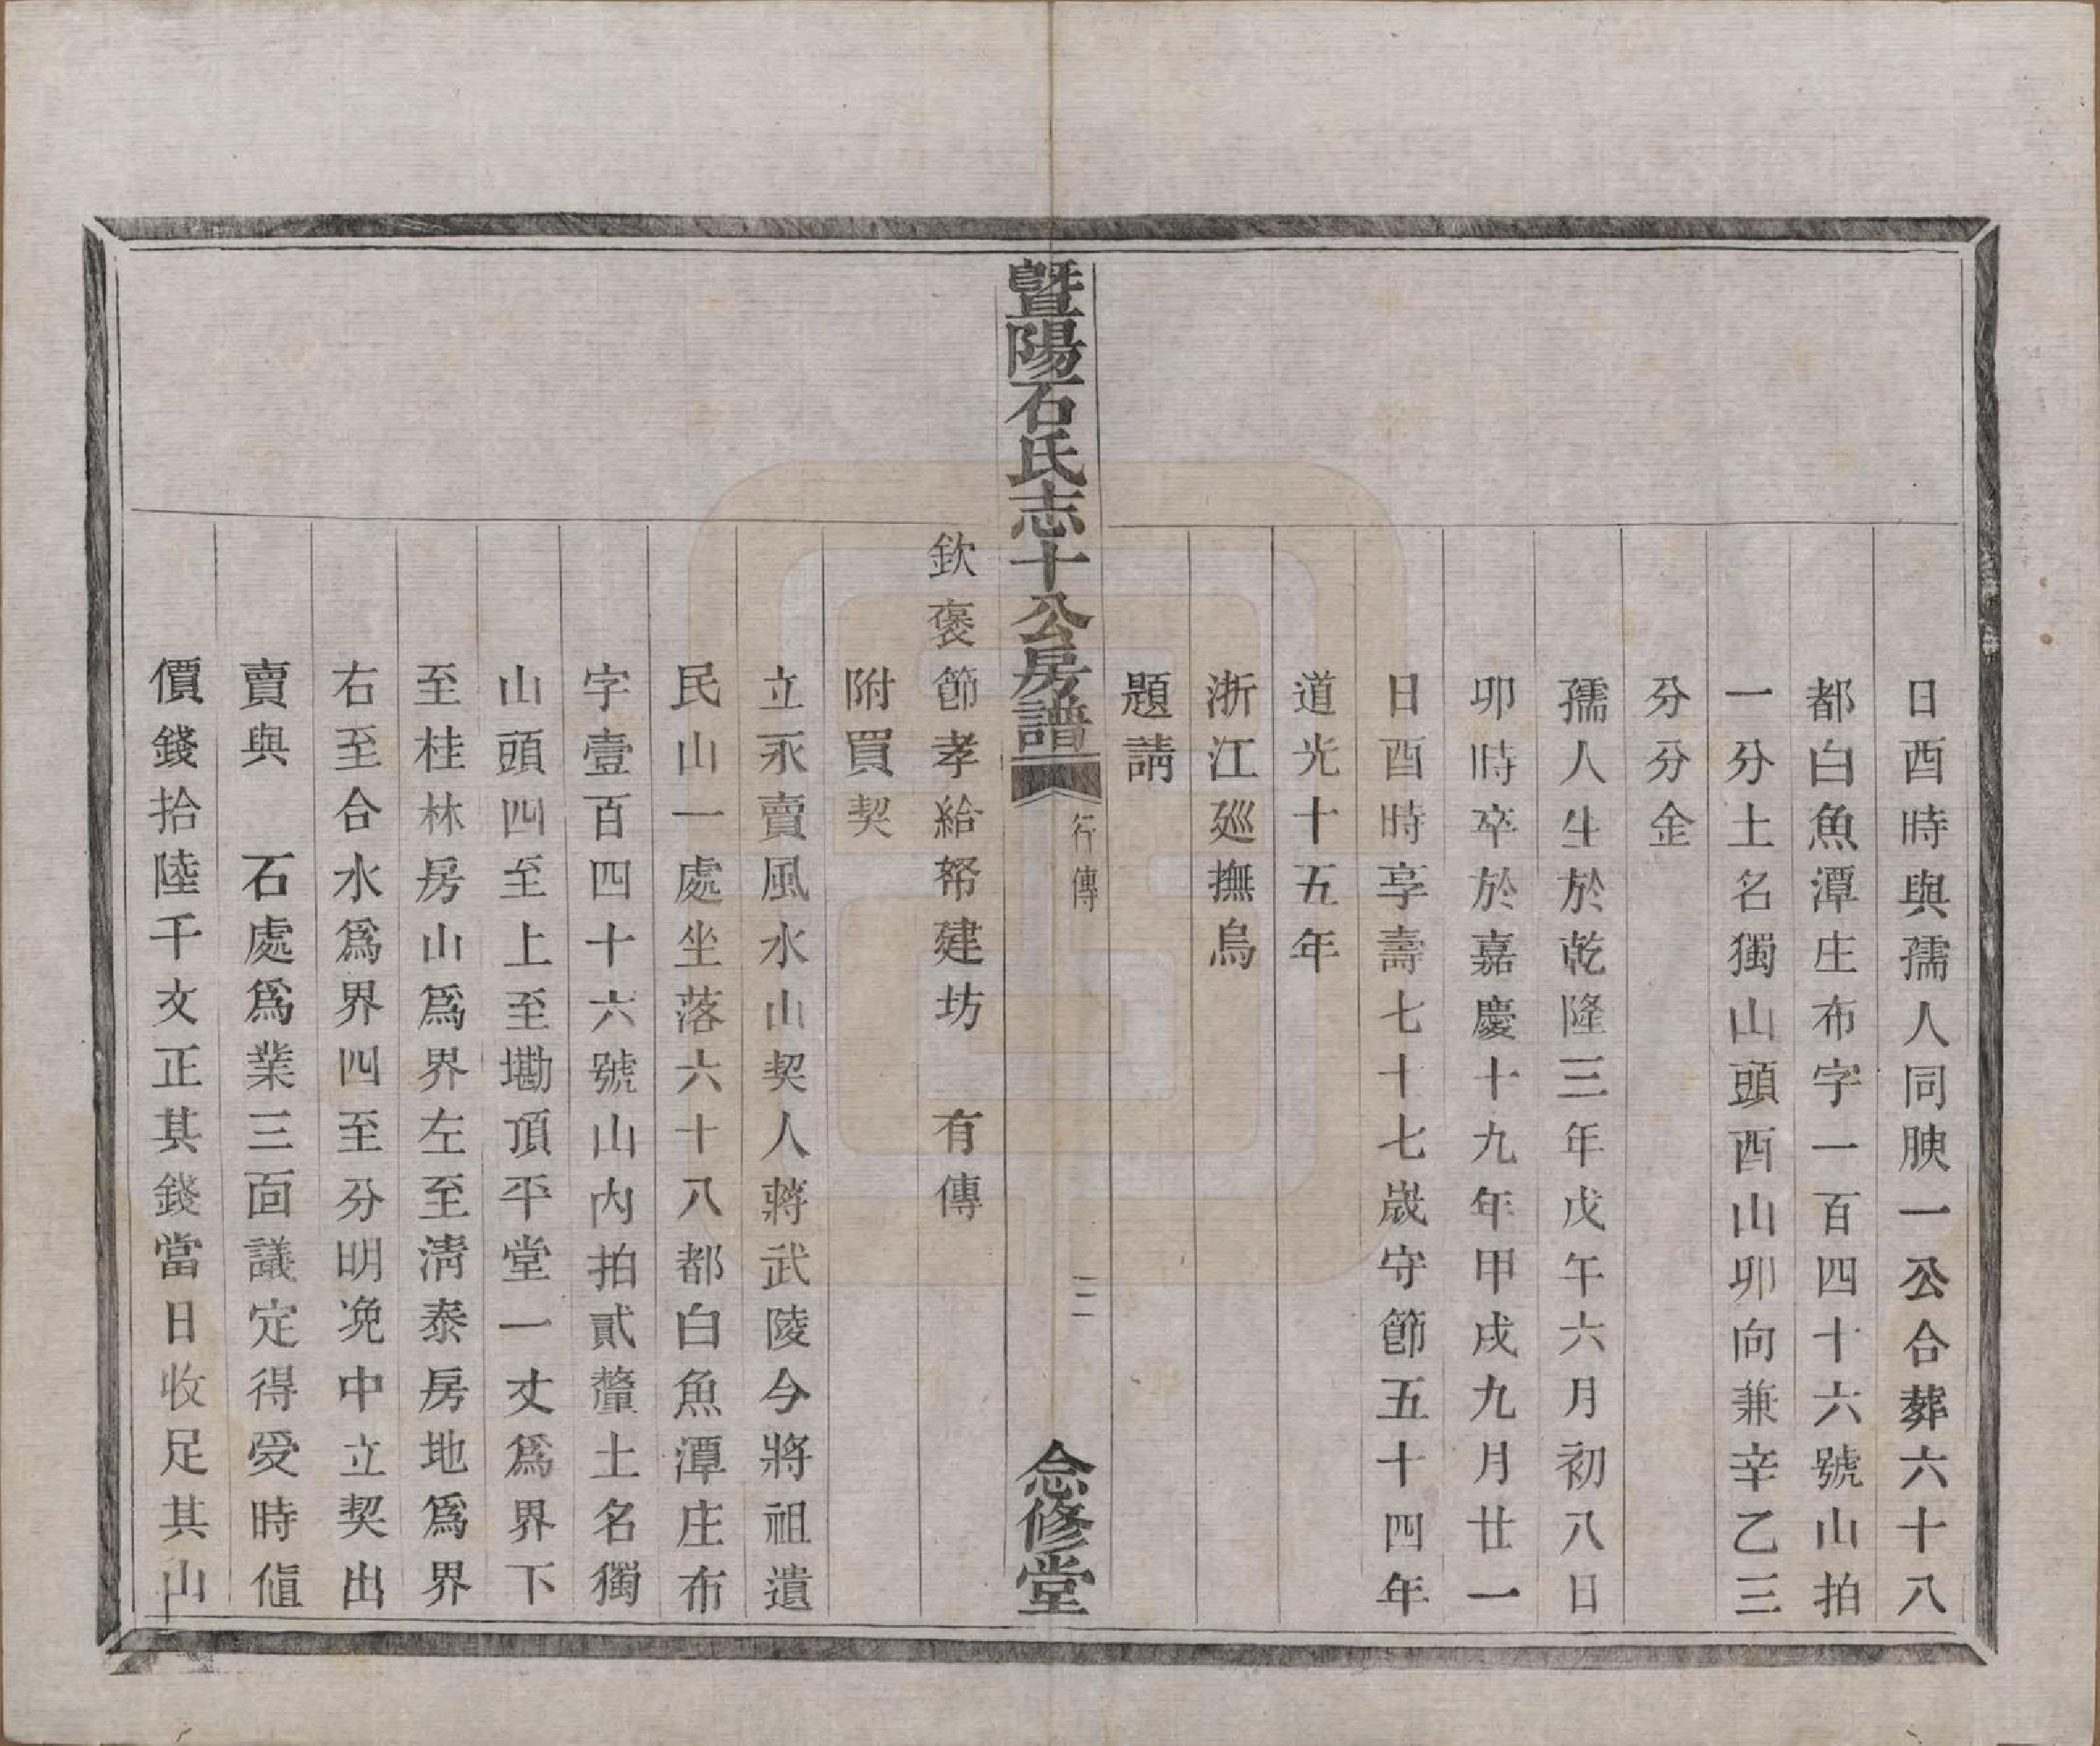 日酉時與孺人同腴一公合葬六十八
都白魚潭庄布字一百四十六號山拍
一分土名獨山頭酉山卯向兼辛乙三
分分金
孺人生於乾隆三年戊午六月初八日
卯時卒於嘉慶十九年甲戌九月廿一
日酉時享壽七十七歲守節五十四年
道光十五年
浙江廵撫烏
題請
暨陽石氏志十公房譜
行傳
二
念修堂
欽褒節孝給帑建坊 有傳
附買契
立永賣風水山契人蔣武陵今將祖遺
民山一處坐落六十八都白魚潭庄布
字壹百四十六號山內拍貳釐土名獨
山頭四至上至墈頂平堂一丈爲界下
至桂林房山爲界左至淸泰房地爲界
右至合水爲界四至分明凂中立契出
賣與 石處爲業三面議定得受時値
價錢拾陸千文正其錢當日收足其山